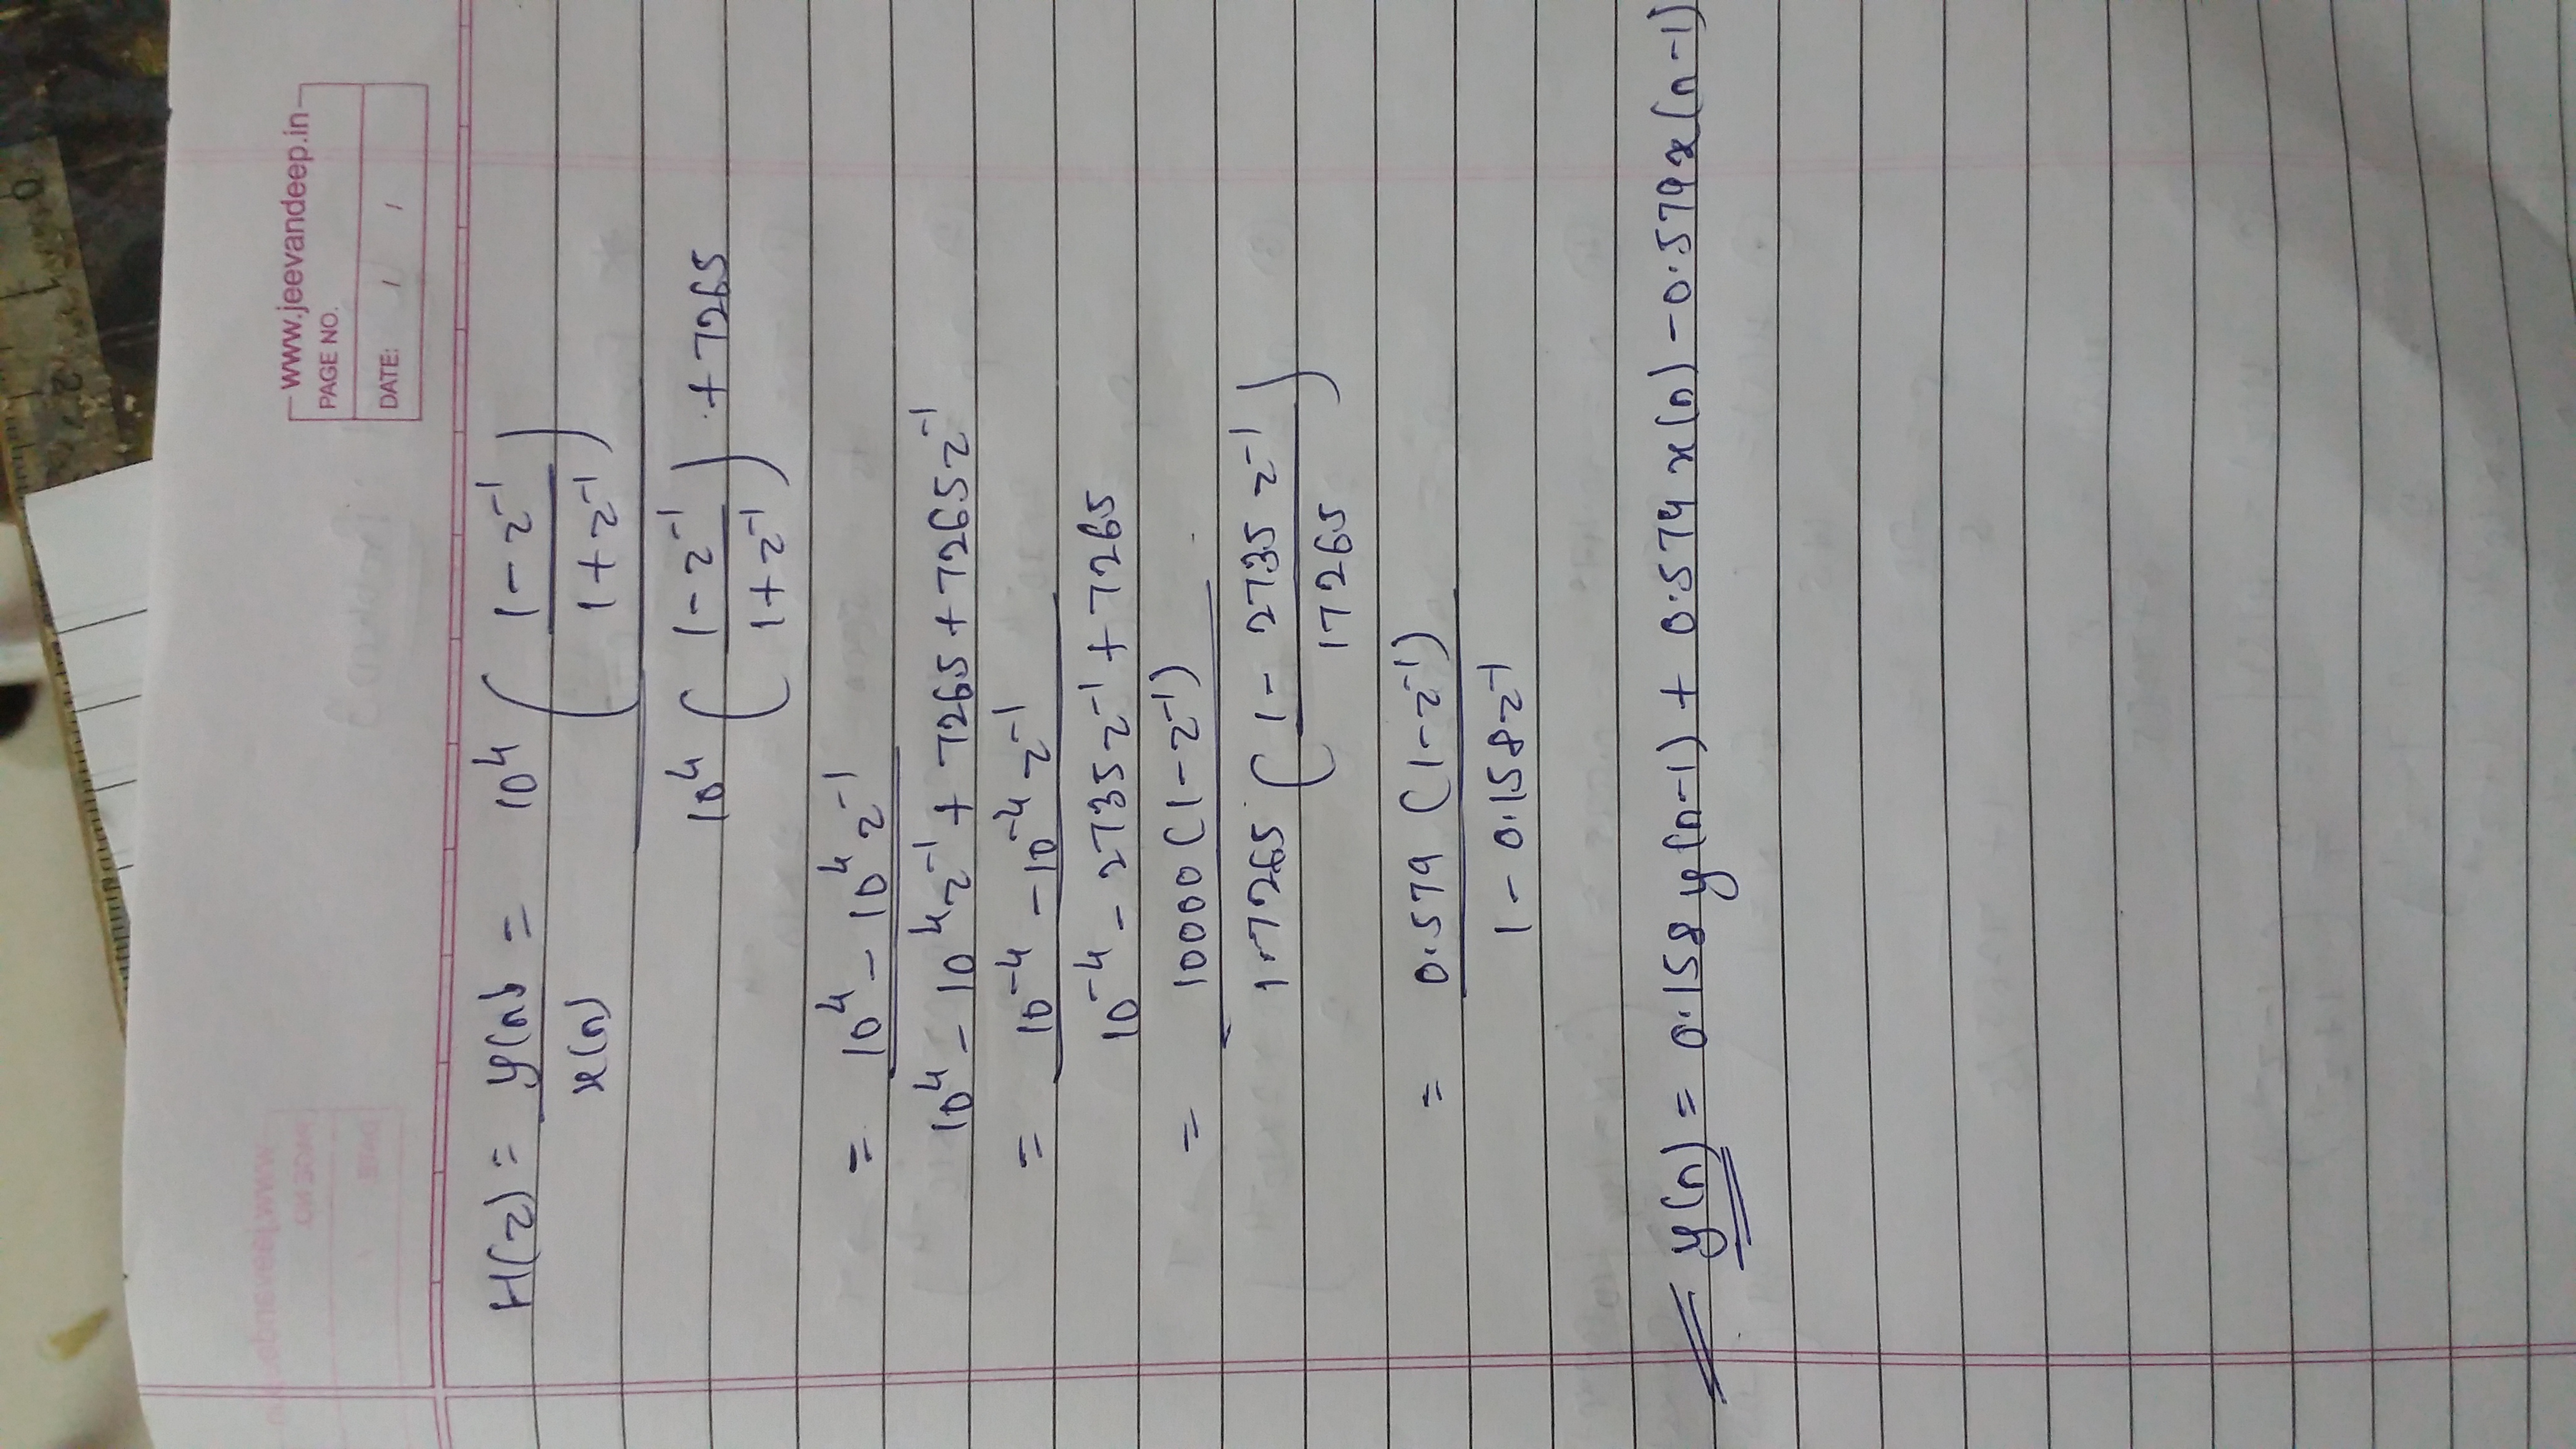 www.jeevandeep.in
PAGE NO.
DATE: / /
H(z) = y(n) = 10⁴ ( 1 - z⁻¹
x(n) 1 + z⁻¹ )
10⁴ ( 1 - z⁻¹ ) + 7265
1 + z⁻¹
= 10⁴ - 10⁴ z⁻¹
10⁴ - 10⁴ z⁻¹ + 7265 + 7265 z⁻¹
= 10⁻⁴ - 10⁻⁴ z⁻¹
10⁻⁴ - 2735 z⁻¹ + 7265
= 10000 (1 - z⁻¹)
17265 ( 1 - 2735 z⁻¹ )
17265
= 0.579 (1 - z⁻¹)
1 - 0.158 z⁻¹
y(n) = 0.158 y(n-1) + 0.574 x(n) - 0.579 x(n-1)